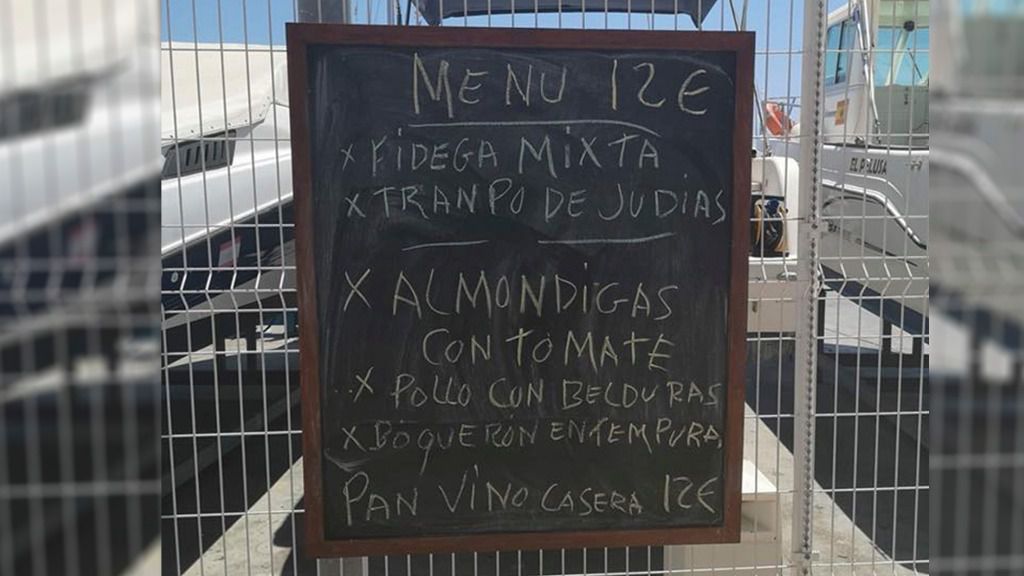 MENU 12€
x FIDEGA MIXTA
x TRANPO DE JUDIAS
X ALMONDIGAS
CON TOMATE
X POLLO CON BELDURAS
X BOQUERON EN TEMPURA
PAN VINO CASERA 12€